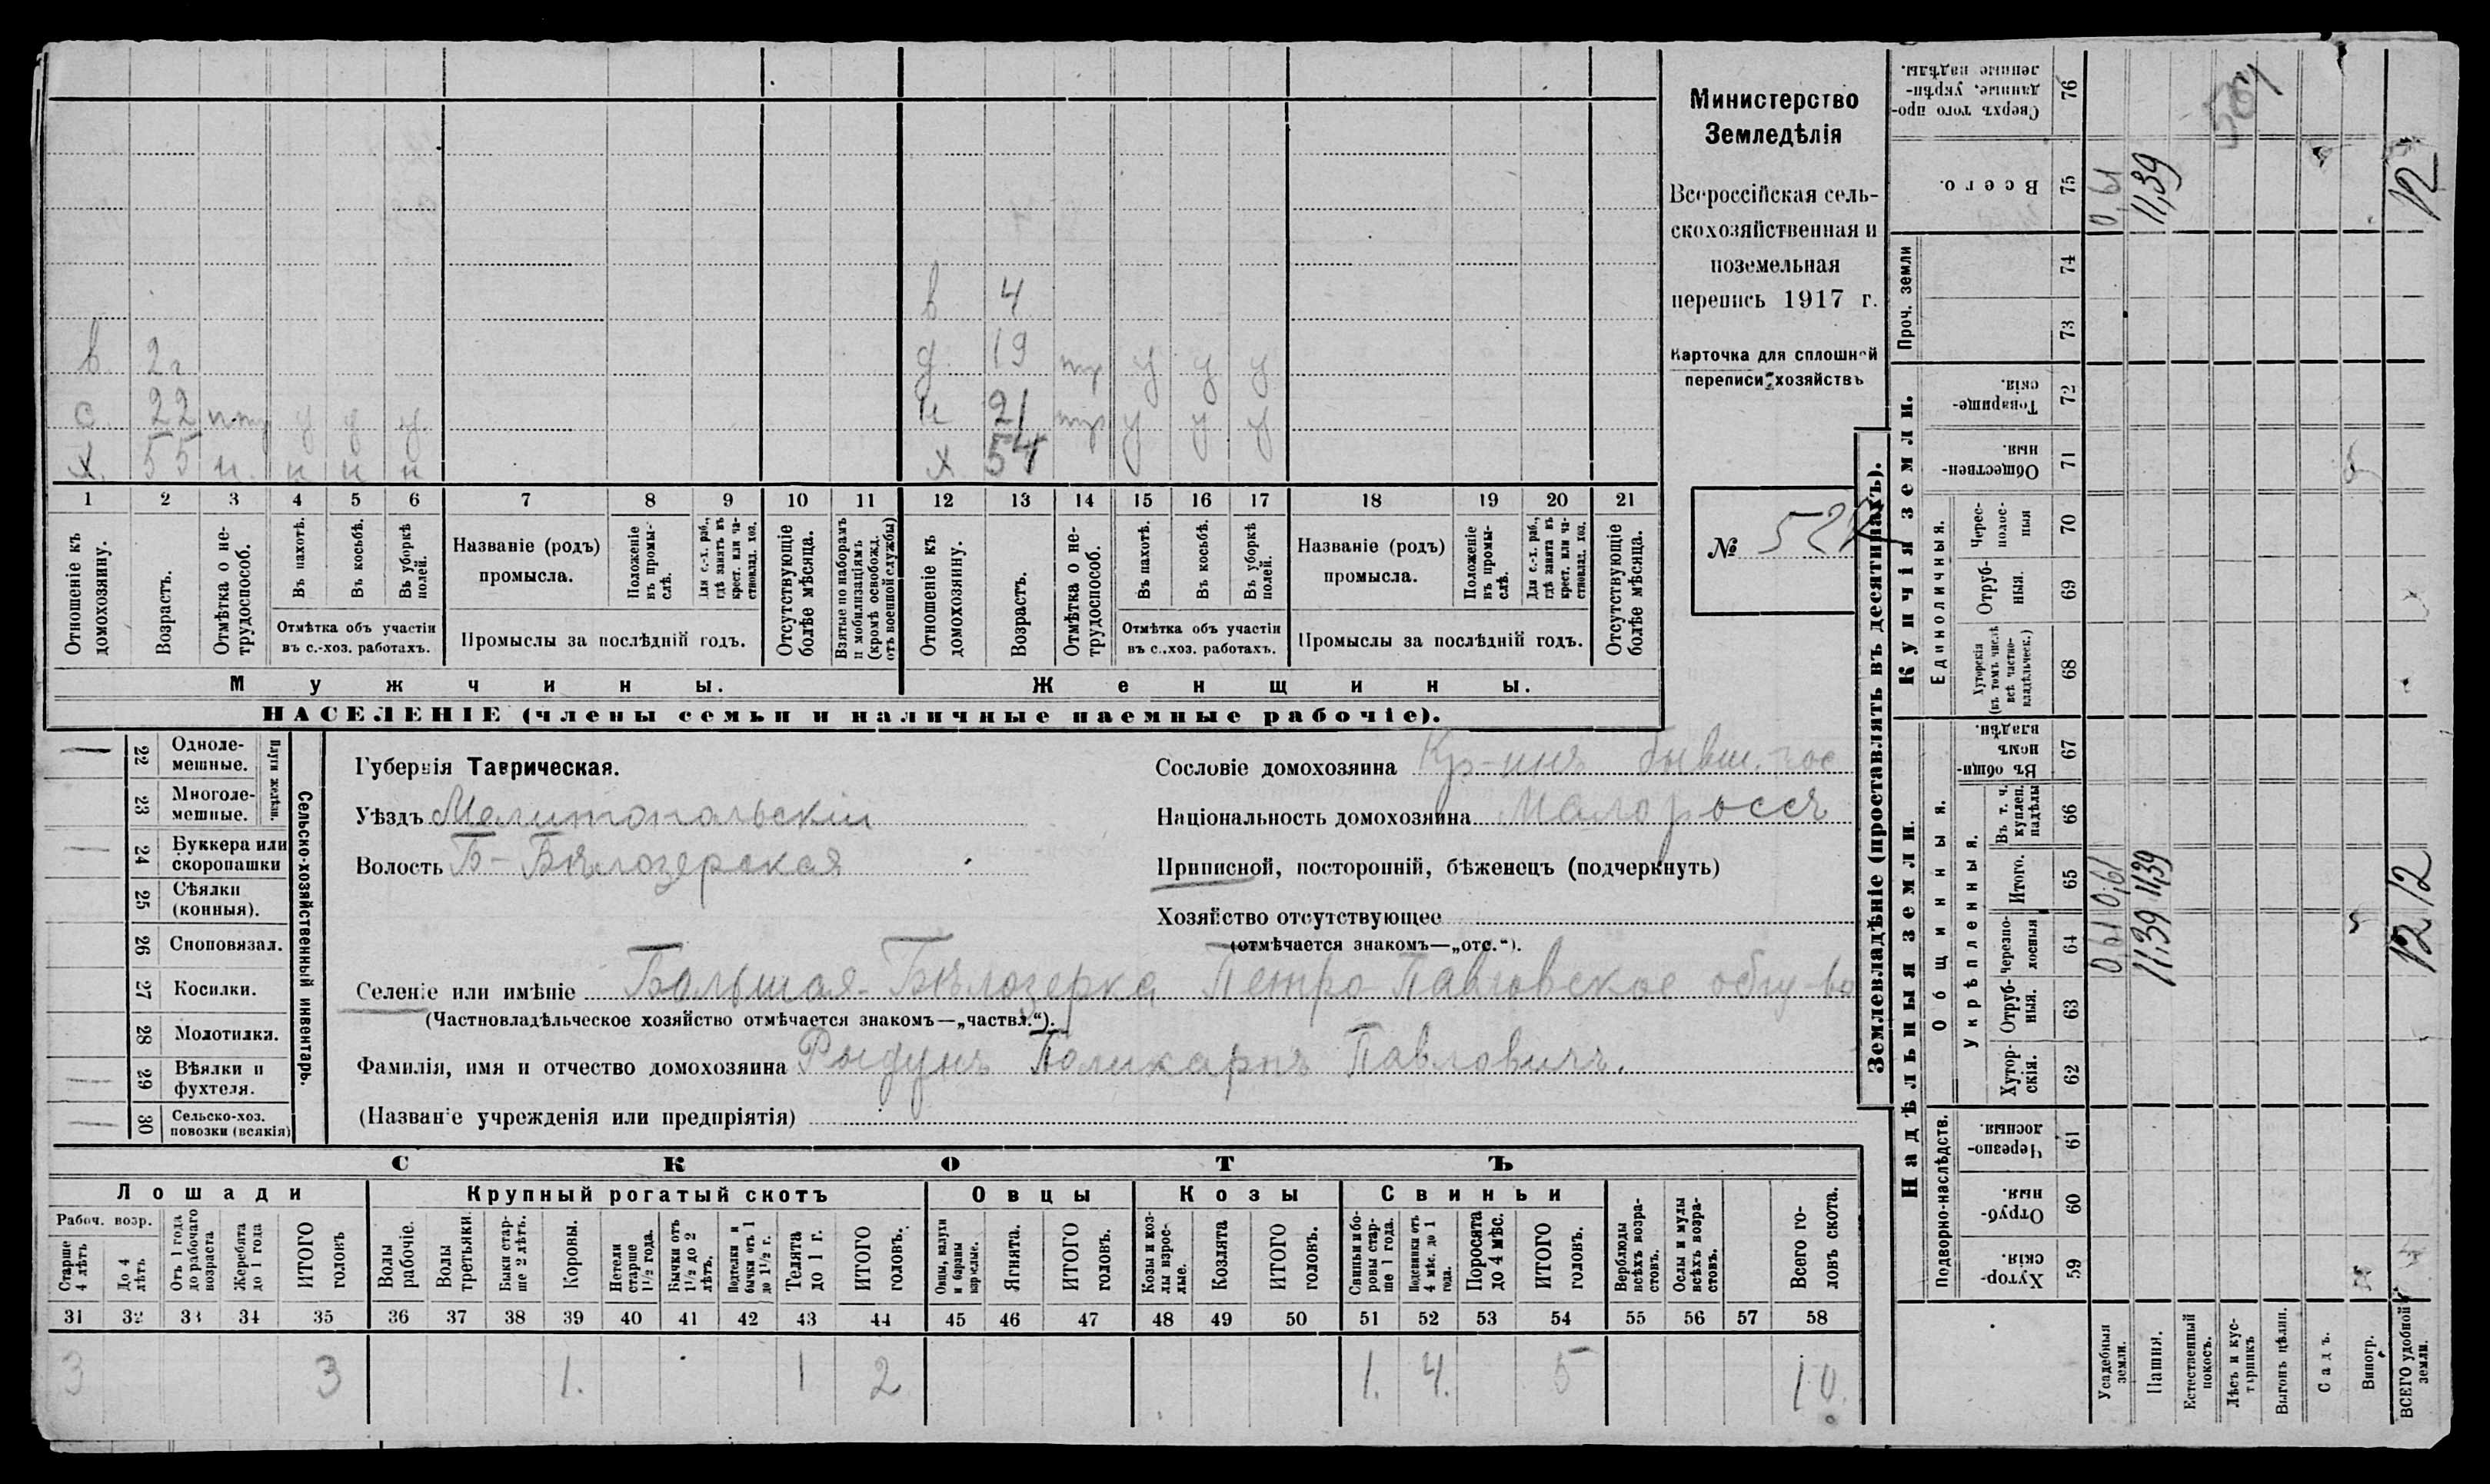 Министерство
Земледѣлія
Всероссійская сель-
скохозяйственная и
поземельная
перепись 1917 г.
Карточка для сплошной
переписи хозяйствъ
№
в 4
в. 2 г д. 19 тр у у у
с. 22 у у у. н 21 тр у у у
х. 55 н. н н н х 54
1 2 3 4 5 6 7 8 9 10 11 12 13 14 15 16 17 18 19 20 21
Отношеніе къ домохозяину.
Возрастъ.
Отмѣтка о не-трудоспособ.
Въ пахотѣ.
Въ косьбѣ.
Въ уборкѣ полей.
Отмѣтка объ участіи
въ с.-хоз. работахъ.
Названіе (родъ)
промысла.
Положеніе въ промы-слѣ.
Для с.-х. раб., гдѣ занятъ въ крест. или ча-стновлад. хоз.
Промыслы за послѣдній годъ.
Отсутствующіе болѣе мѣсяца.
Взятые по наборамъ и мобилизаціямъ (кромѣ освобожд. отъ военной службы)
Отношеніе къ домохозяину.
Возрастъ.
Отмѣтка о не-трудоспособ.
Въ пахотѣ.
Въ косьбѣ.
Въ уборкѣ полей.
Отмѣтка объ участіи
въ с.-хоз. работахъ.
Названіе (родъ)
промысла.
Положеніе въ промы-слѣ.
Для с.-х. раб., гдѣ занята въ крест. или ча-стновлад. хоз.
Промыслы за послѣдній годъ.
Отсутствующіе болѣе мѣсяца.
Мужчины. Женщины.
НАСЕЛЕНІЕ (члены семьи и наличные наемные рабочіе).
Сельско-хозяйственный инвентарь.
Плуги желѣзн.
22 Одноле-мешные. —
23 Многоле-мешные.
24 Буккера или скоропашки —
25 Сѣялки (конныя).
26 Сноповязал.
27 Косилки.
28 Молотилки.
29 Вѣялки и фухтеля. —
30 Сельско-хоз. повозки (всякія) —
Губернія Таврическая.
Уѣздъ Мелитопольскій
Волость Б-Бѣлозерская
Сословіе домохозяина Кр-инъ бывш. гос
Національность домохозяина Малороссъ
Приписной, посторонній, бѣженецъ (подчеркнуть)
Хозяйство отсутствующее
(отмѣчается знакомъ—„отс.“).
Селеніе или имѣніе Большая-Бѣлозерка Петро Павловское общ-во
(Частновладѣльческое хозяйство отмѣчается знакомъ—„частвл.“).
Фамилія, имя и отчество домохозяина Рыдунъ Поликарпъ Павловичъ.
(Названіе учрежденія или предпріятія)
СКОТЪ
Лошади Крупный рогатый скотъ Овцы Козы Свиньи
Рабоч. возр.
Старше 4 лѣтъ
До 4 лѣтъ
Отъ 1 года до рабочаго возраста
Жеребята до 1 года
ИТОГО головъ
Волы рабочіе.
Волы третьяки.
Быки стар-ше 2 лѣтъ.
Коровы.
Нетели старше 1½ года.
Бычки отъ 1½ до 2 лѣтъ.
Подтелки и бычки отъ 1 до 1½ г.
Телята до 1 г.
ИТОГО головъ.
Овцы, валухи и бараны взрослые.
Ягнята.
ИТОГО головъ.
Козы и коз-лы взрос-лые.
Козлята
ИТОГО головъ.
Свиньи и бо-ровы стар-ше 1 года.
Подсвинки отъ 4 мѣс. до 1 года.
Поросята до 4 мѣс.
ИТОГО головъ.
Верблюды всѣхъ возра-стовъ.
Ослы и мулы всѣхъ возра-стовъ.
Всего го-ловъ скота.
31 32 33 34 35 36 37 38 39 40 41 42 43 44 45 46 47 48 49 50 51 52 53 54 55 56 57 58
3 3 1. 1 2 1. 4. 5 10.
Землевладѣніе (проставлять въ десятинахъ).
Надѣльныя земли. Купчія земли. Проч. земли
Подворно-наслѣдств. Общинныя. Укрѣпленныя. Единоличныя.
Хутор-скія. 59
Отруб-ныя. 60
Черезпо-лосныя. 61
Хутор-скія. 62
Отруб-ныя. 63
Черезпо-лосныя 64
Итого. 65
Въ т. ч. куплен. надѣлы 66
Въ общи-номъ владѣн. 67
Хуторскія (въ томъ числѣ всѣ частно-владѣльческ.) 68
Отруб-ныя. 69
Черес-полос-ныя 70
Обществен-ныя. 71
Товарище-скія. 72
73
74
Всего. 75
Сверхъ того про-данные, укрѣп-ленные надѣлы. 76
Усадебныя земли. 0,61 0,61 0,61
Пашня. 11,39 11,39 11,39
Естественный покосъ.
Лѣсъ и кус-тарникъ
Выгонъ цѣлин.
Садъ.
Виногр.
ВСЕГО удобной земли. 12 12 12